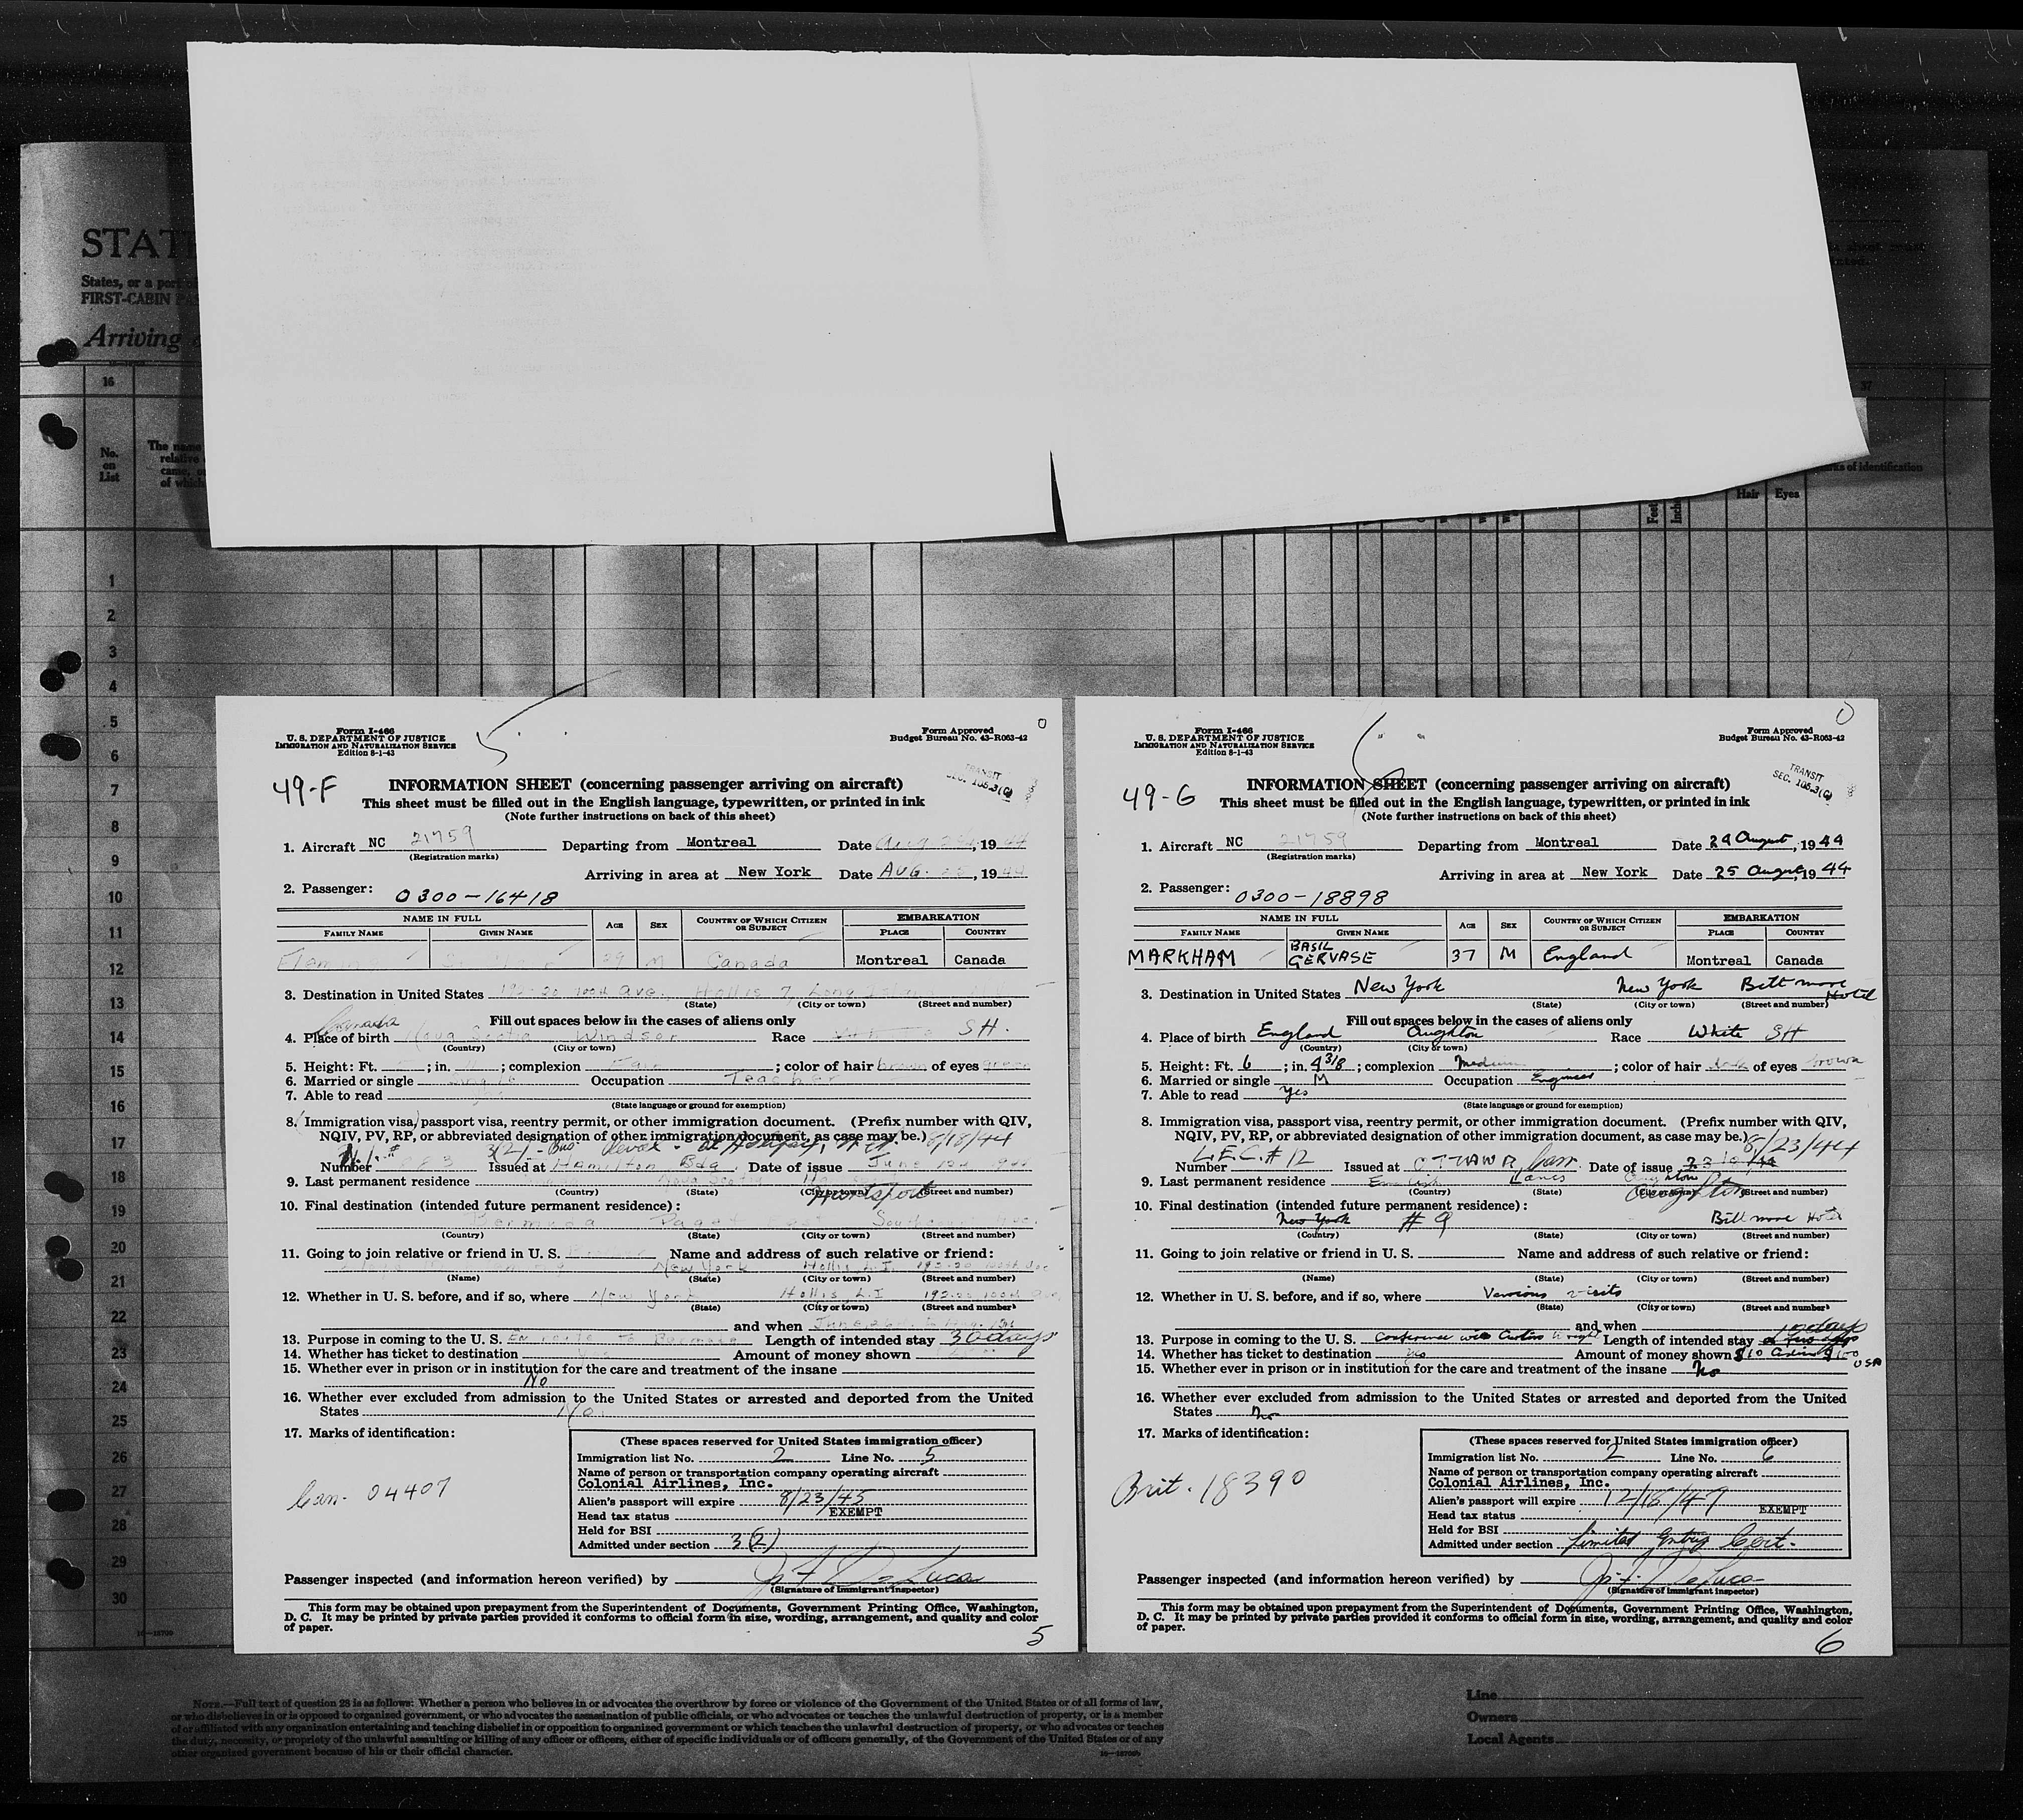 STAT
States, or a port of
FIRST-CABIN PAS
Arriving
16
37
No. on List
The name
relative
came, or
of which
marks of identification
Feet
Inches
Hair
Eyes
1
2
3
4
5
6
7
8
9
10
11
12
13
14
15
16
17
18
19
20
21
22
23
24
25
26
27
28
29
30
16—18709
5
Form I-466
U. S. DEPARTMENT OF JUSTICE
IMMIGRATION AND NATURALIZATION SERVICE
Edition 8-1-43
Form Approved
Budget Bureau No. 43-R063-42
49-F
TRANSIT
SEC. 108.3(G)
INFORMATION SHEET (concerning passenger arriving on aircraft)
This sheet must be filled out in the English language, typewritten, or printed in ink
(Note further instructions on back of this sheet)
1. Aircraft NC 21759 Departing from Montreal Date Aug. 24, 1944
(Registration marks)
Arriving in area at New York Date AUG. 1944
2. Passenger: 0300-16418
NAME IN FULL AGE SEX COUNTRY OF WHICH CITIZEN OR SUBJECT EMBARKATION
FAMILY NAME GIVEN NAME PLACE COUNTRY
29 M Canada Montreal Canada
3. Destination in United States 192-20 100th Ave. Hollis 7, Long Island
(State) (City or town) (Street and number)
Fill out spaces below in the cases of aliens only
Canada
4. Place of birth Nova Scotia Windsor Race SH.
(Country) (City or town)
5. Height: Ft. ; in. ; complexion Fair ; color of hair brown of eyes green
6. Married or single Single Occupation Teacher
7. Able to read
(State language or ground for exemption)
8. (Immigration visa,) passport visa, reentry permit, or other immigration document. (Prefix number with QIV,
NQIV, PV, RP, or abbreviated designation of other immigration document, as case may be.) 8/18/44
3(2) - Bus
Number Issued at Hamilton Bda. Date of issue June
9. Last permanent residence Nova Scotia Hantsport
(Country) (State) (City or town) (Street and number)
10. Final destination (intended future permanent residence):
Bermuda Paget
(Country) (State) (City or town) (Street and number)
11. Going to join relative or friend in U. S. Name and address of such relative or friend:
New York Hollis, L.I. 192-20 100th Ave
(Name) (State) (City or town) (Street and number)
12. Whether in U. S. before, and if so, where New York Hollis, L.I 192-20 100th Ave,
(State) (City or town) (Street and number)
and when
13. Purpose in coming to the U. S. En route to Bermuda Length of intended stay 30 days
14. Whether has ticket to destination Amount of money shown
15. Whether ever in prison or in institution for the care and treatment of the insane
No
16. Whether ever excluded from admission to the United States or arrested and deported from the United
States No
17. Marks of identification:
Can. 04407
(These spaces reserved for United States immigration officer)
Immigration list No. 2 Line No. 5
Name of person or transportation company operating aircraft
Colonial Airlines, Inc.
Alien's passport will expire 8/23/45
Head tax status EXEMPT
Held for BSI
Admitted under section 3(2)
Passenger inspected (and information hereon verified) by
(Signature of immigrant inspector)
This form may be obtained upon prepayment from the Superintendent of Documents, Government Printing Office, Washington,
D. C. It may be printed by private parties provided it conforms to official form in size, wording, arrangement, and quality and color
of paper.
5
6
Form I-466
U. S. DEPARTMENT OF JUSTICE
IMMIGRATION AND NATURALIZATION SERVICE
Edition 8-1-43
Form Approved
Budget Bureau No. 43-R063-42
49-G
TRANSIT
SEC. 108.3(G)
INFORMATION SHEET (concerning passenger arriving on aircraft)
This sheet must be filled out in the English language, typewritten, or printed in ink
(Note further instructions on back of this sheet)
1. Aircraft NC 21759 Departing from Montreal Date 24 August, 1944
(Registration marks)
Arriving in area at New York Date 25 August, 1944
2. Passenger: 0300-18898
NAME IN FULL AGE SEX COUNTRY OF WHICH CITIZEN OR SUBJECT EMBARKATION
FAMILY NAME GIVEN NAME PLACE COUNTRY
MARKHAM BASIL GERVASE 37 M England Montreal Canada
3. Destination in United States New York New York Biltmore Hotel
(State) (City or town) (Street and number)
Fill out spaces below in the cases of aliens only
4. Place of birth England Aughton Race White SH
(Country) (City or town)
5. Height: Ft. 6 ; in. 4 3/8 ; complexion Medium ; color of hair dark of eyes brown
6. Married or single M Occupation Engineer
7. Able to read Yes
(State language or ground for exemption)
8. Immigration visa, passport visa, reentry permit, or other immigration document. (Prefix number with QIV,
NQIV, PV, RP, or abbreviated designation of other immigration document, as case may be.) 8/23/44
Number L.E.C. # 12 Issued at OTTAWA, Can. Date of issue
9. Last permanent residence English Lancs Aughton
(Country) (State) (City or town) (Street and number)
10. Final destination (intended future permanent residence):
New York # 9 Biltmore Hotel
(Country) (State) (City or town) (Street and number)
11. Going to join relative or friend in U. S. Name and address of such relative or friend:
(Name) (State) (City or town) (Street and number)
12. Whether in U. S. before, and if so, where Various visits
(State) (City or town) (Street and number)
and when
13. Purpose in coming to the U. S. Conference with Curtiss Wright Length of intended stay
14. Whether has ticket to destination yes Amount of money shown $10 $100 USA
15. Whether ever in prison or in institution for the care and treatment of the insane No
16. Whether ever excluded from admission to the United States or arrested and deported from the United
States No
17. Marks of identification:
Brit. 18390
(These spaces reserved for United States immigration officer)
Immigration list No. 2 Line No. 6
Name of person or transportation company operating aircraft
Colonial Airlines, Inc.
Alien's passport will expire 12/18/47
Head tax status EXEMPT
Held for BSI
Admitted under section Limited Entry Cert.
Passenger inspected (and information hereon verified) by
(Signature of immigrant inspector)
This form may be obtained upon prepayment from the Superintendent of Documents, Government Printing Office, Washington,
D. C. It may be printed by private parties provided it conforms to official form in size, wording, arrangement, and quality and color
of paper.
6
NOTE.—Full text of question 28 is as follows: Whether a person who believes in or advocates the overthrow by force or violence of the Government of the United States or of all forms of law,
or who disbelieves in or is opposed to organized government, or who advocates the assassination of public officials, or who advocates or teaches the unlawful destruction of property, or is a member
of or affiliated with any organization entertaining and teaching disbelief in or opposition to organized government or which teaches the unlawful destruction of property, or who advocates or teaches
the duty, necessity, or propriety of the unlawful assaulting or killing of any officer or officers, either of specific individuals or of officers generally, of the Government of the United States or of any
other organized government because of his or their official character.
16—18709
Line
Owners
Local Agents